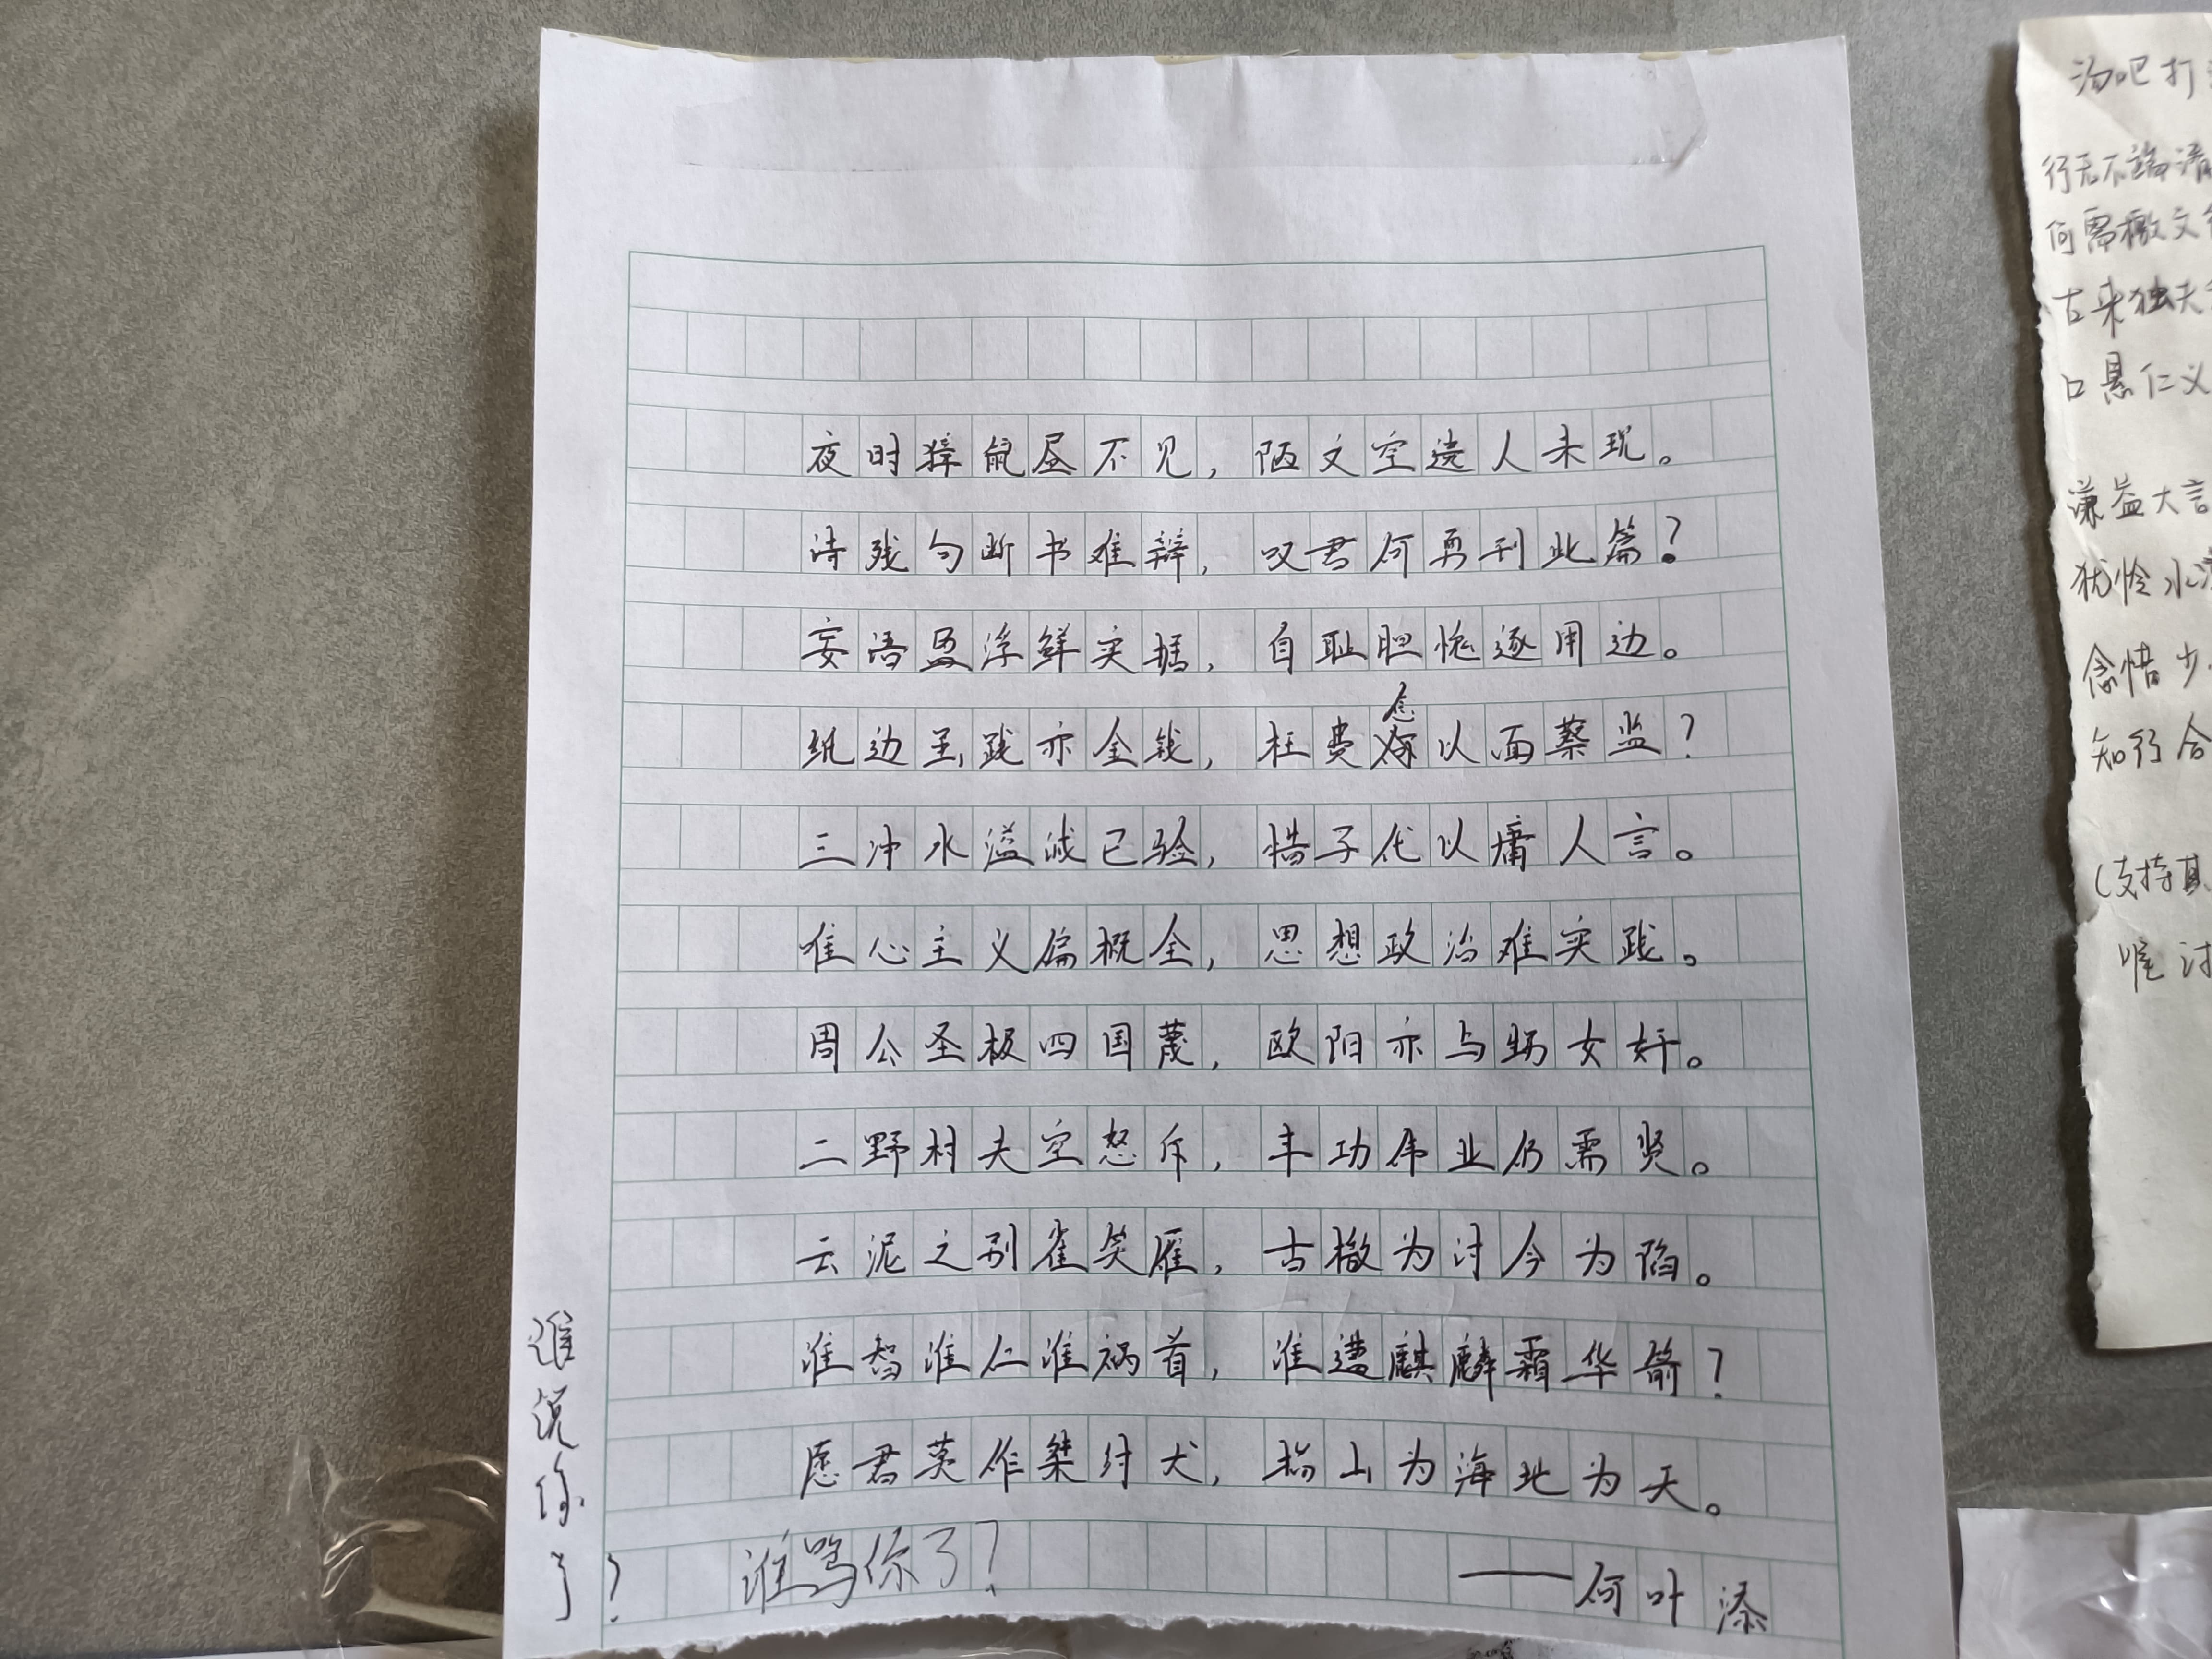 夜时獐鼠昼不见，陋文空造人未现。
诗残句断书难辩，叹君何勇刊此篇？
妄语盈浮鲜实据，自耻胆愧逐用边。
纸边呈践亦金钱，枉费您以面蔡监？
三冲水溢诚已验，惜子化以庸人言。
唯心主义偏概全，思想政治难实践。
周公圣极四国蔑，欧阳亦与甥女奸。
二野村夫空怒斥，丰功伟业仍需贤。
云泥之别雀笑雁，古檄为讨今为陷。
谁智谁仁谁祸首，谁遭麒麟霜华箭？
愿君莫作桀纣犬，指山为海北为天。
——何叶添
谁骂你了？
谁说你了？
汤吧打
行无不端清
何需檄文
古来独夫
口悬仁义
谦益大言
犹怜水
念惜少
知行合
（支持